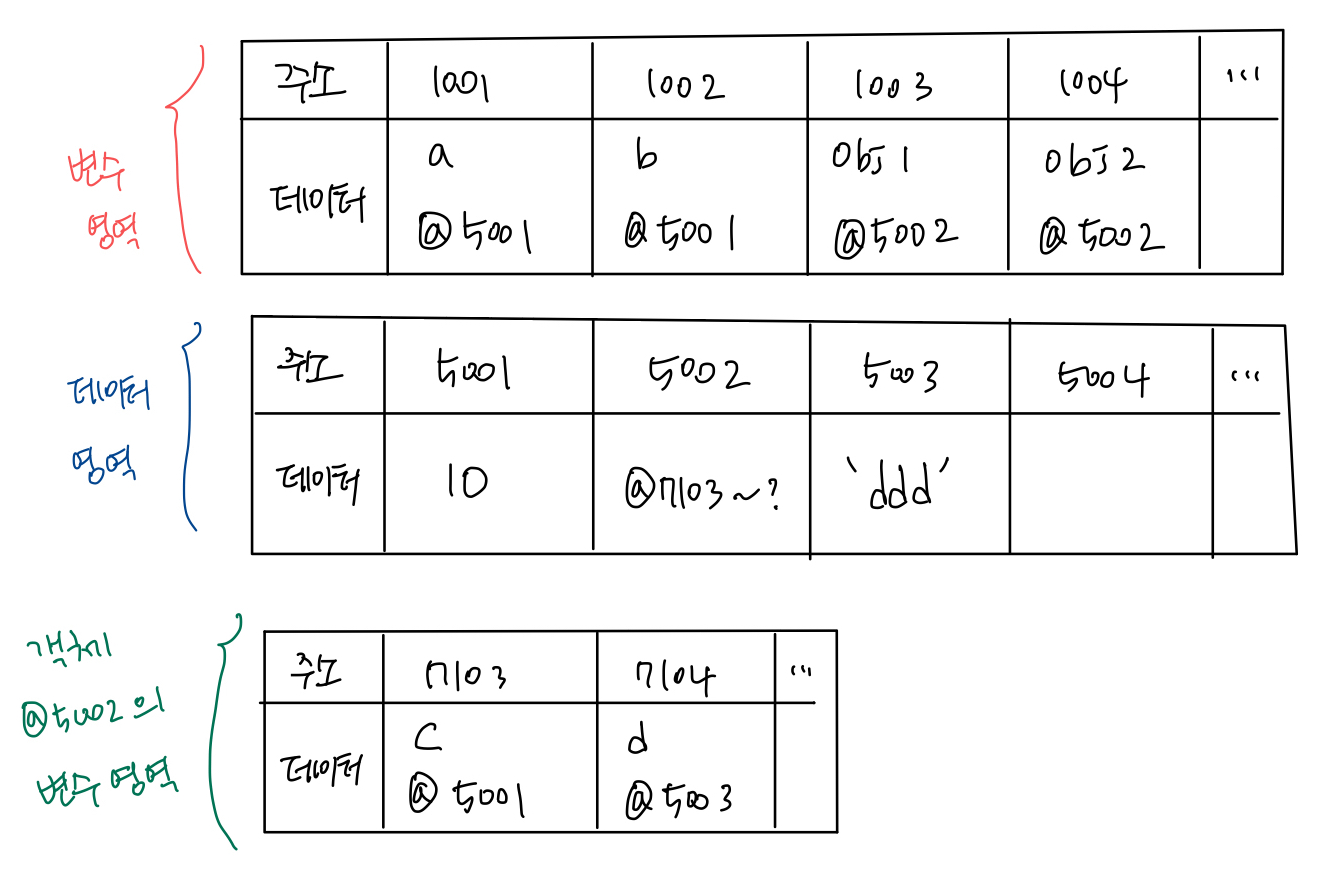 변수
영역
주소 1001 1002 1003 1004 ...
a b obj1 obj2
데이터
@5001 @5001 @5002 @5002
데이터
영역
주소 5001 5002 5003 5004 ...
데이터 10 @7103~? 'ddd'
객체
@5002의
변수 영역
주소 7103 7104 ...
c d
데이터
@5001 @5003